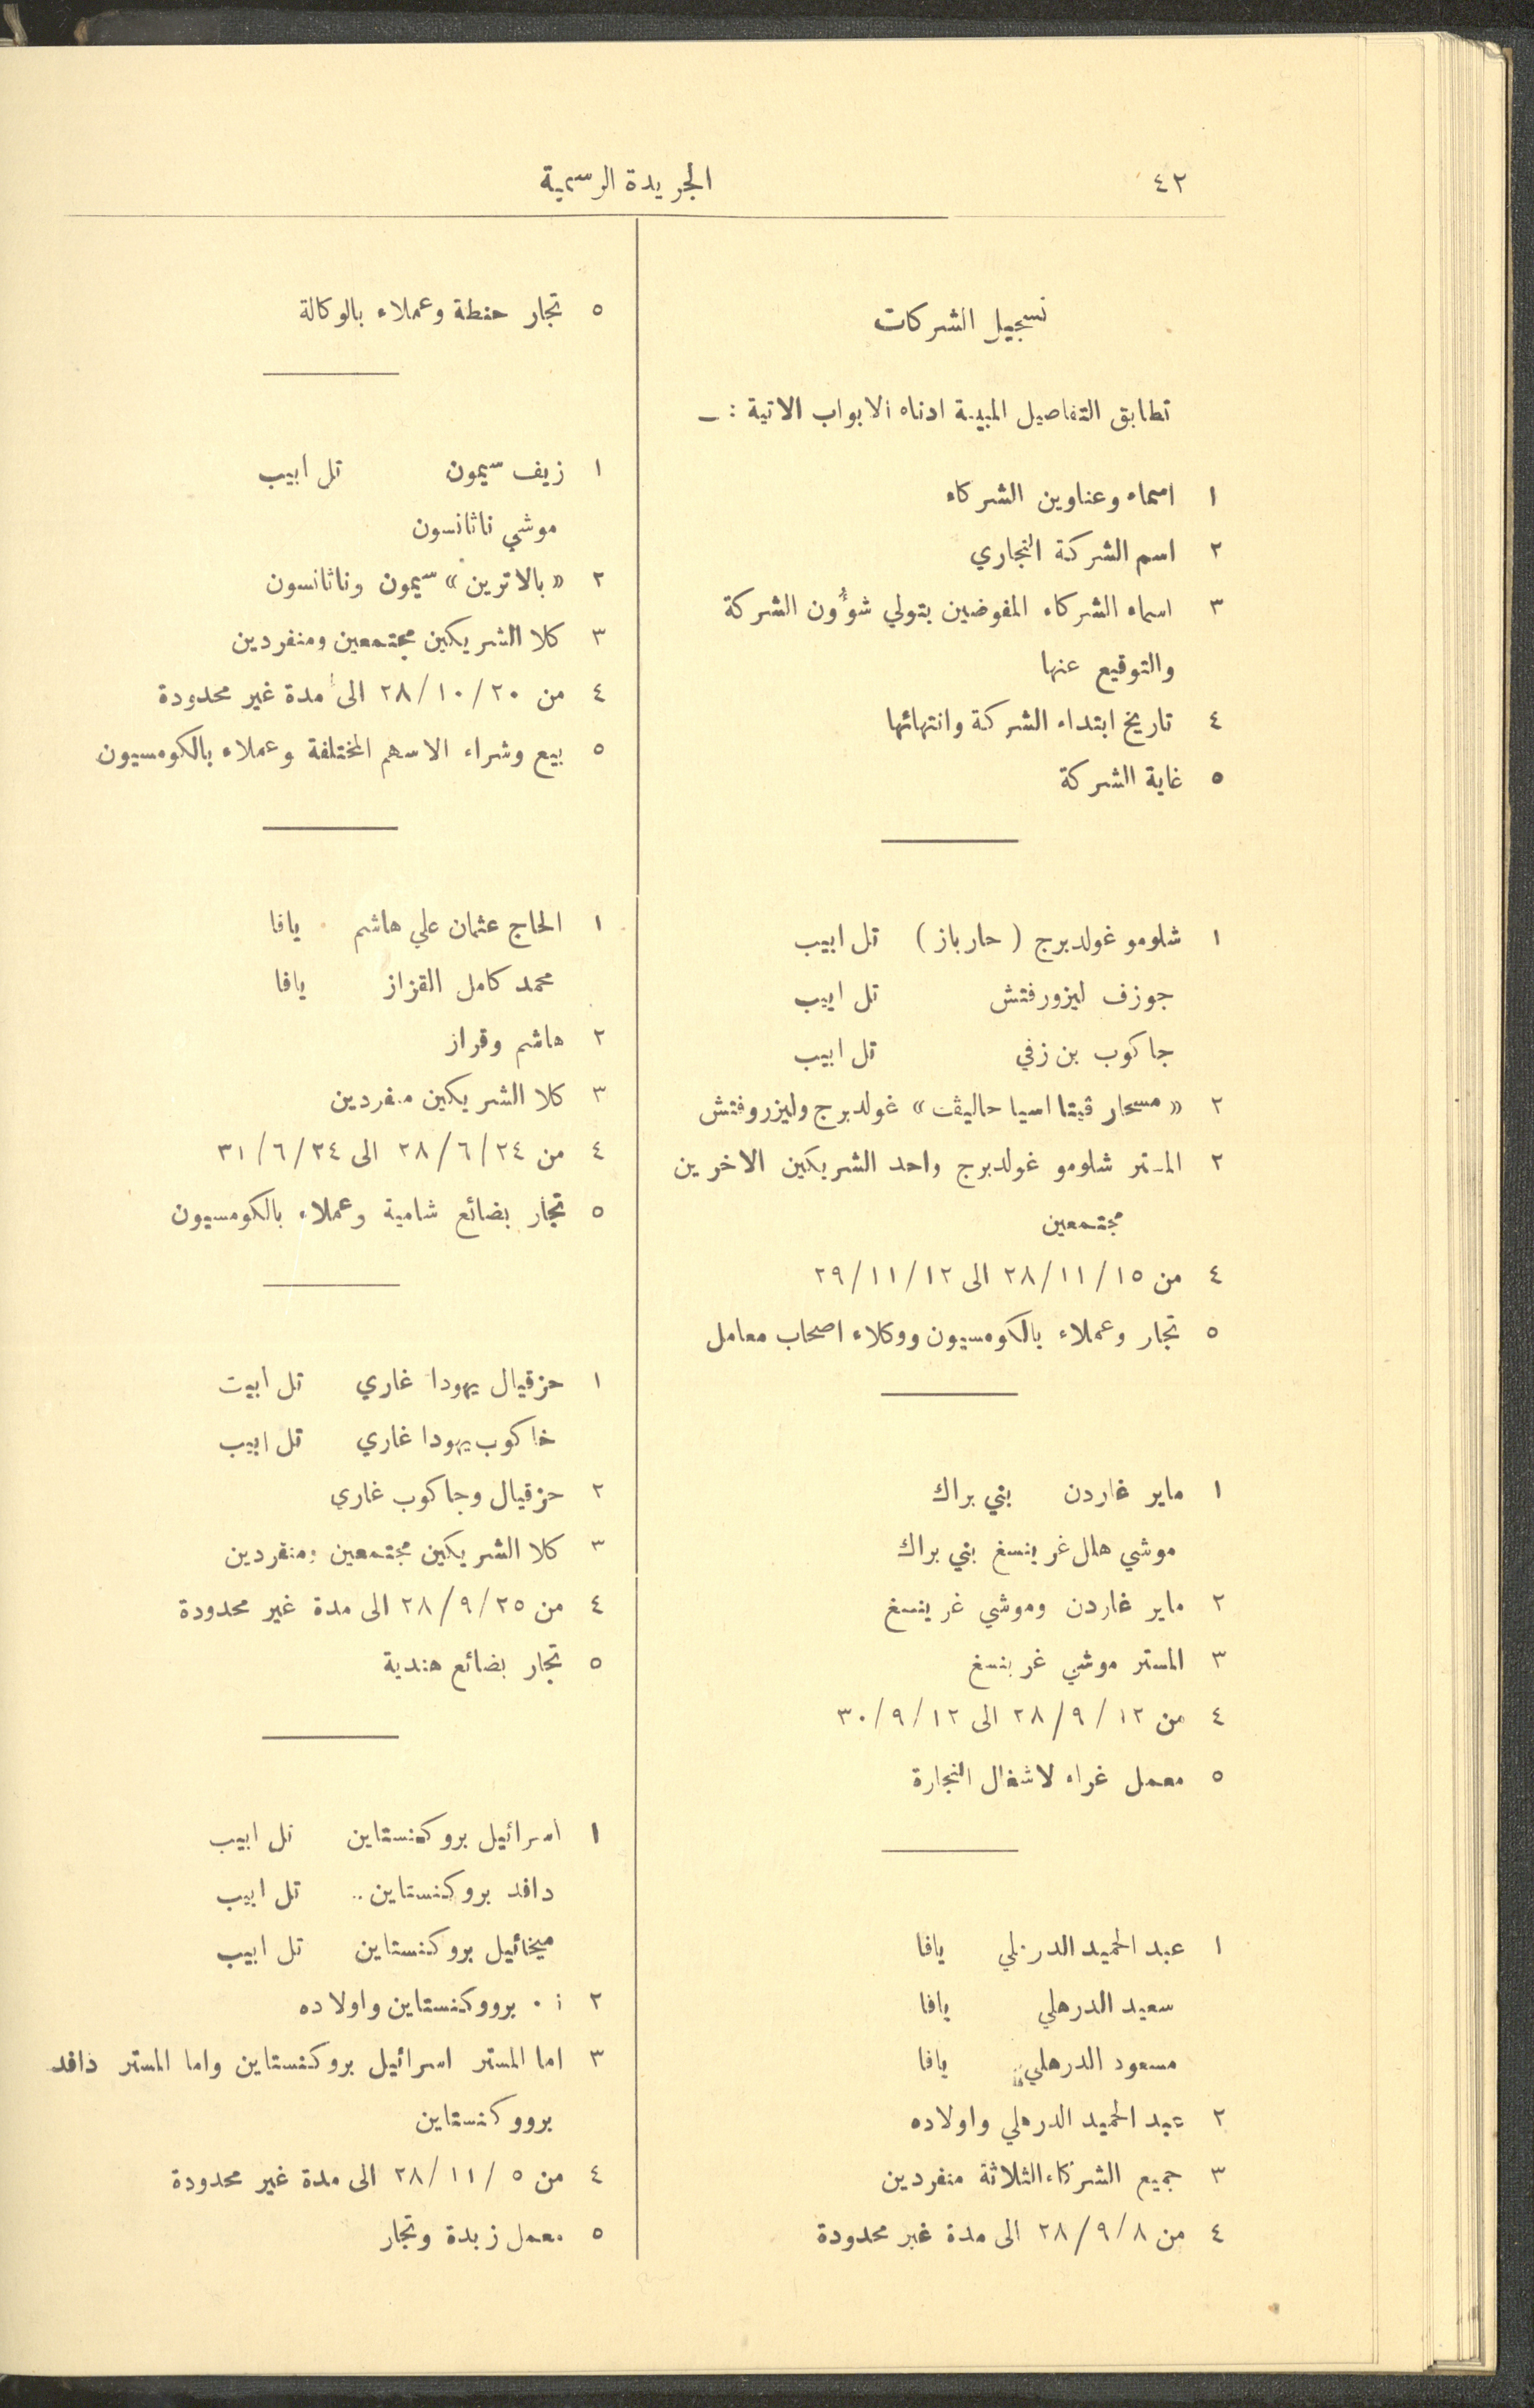 ٤٢
الجريدة الرسمية
تسجيل الشركات
تطابق التفاصيل المبينة ادناه الابواب الاتية : –
١ اسماء وعناوين الشركاء
٢ اسم الشركة التجاري
٣ اسماء الشركاء المفوضين بتولي شؤُون الشركة
والتوقيع عنها
٤ تاريخ ابتداء الشركة وانتهائها
٥ غاية الشركة
١ شلومو غولدبرج ( حار باز ) تل ابيب
جوزف ليزورفتش تل ابيب
جاكوب بن زفي تل ابيب
٢ « مسحار ڤيتا اسيا حاليڤت » غولدبرج وليزروفتش
٢ المستر شلومو غولدبرج واحد الشريكين الاخرين
مجتمعين
٤ من ١٥/١١/٢٨ الى ١٢/١١/٢٩
٥ تجار وعملاء بالكومسيون ووكلاء اصحاب معامل
١ ماير غاردن بني براك
موشي هلل غرينسغ بني براك
٢ ماير غاردن وموشي غرينسغ
٣ المستر موشي غرينسغ
٤ من ١٢/٩/٢٨ الى ١٢/٩/٣٠
٥ معمل غراء لاشغال النجارة
١ عبد الحميد الدرهلي يافا
سعيد الدرهلي يافا
مسعود الدرهلي يافا
٢ عبد الحميد الدرهلي واولاده
٣ جميع الشركاء الثلاثة منفردين
٤ من ٨/٩/٢٨ الى مدة غير محدودة
٥ تجار حنطة وعملاء بالوكالة
١ زيف سيمون تل ابيب
موشي ناثانسون
٢ « بالاترين » سيمون وناثانسون
٣ كلا الشريكين مجتمعين ومنفردين
٤ من ٢٠/١٠/٢٨ الى مدة غير محدودة
٥ بيع وشراء الاسهم المختلفة وعملاء بالكومسيون
١ الحاج عثمان علي هاشم يافا
محمد كامل القزاز يافا
٢ هاشم وقراز
٣ كلا الشريكين منفردين
٤ من ٢٤/٦/٢٨ الى ٢٤/٦/٣١
٥ تجار بضائع شامية وعملاء بالكومسيون
١ حزقيال يهودا غاري تل ابيت
خاكوب يهودا غاري تل ابيب
٢ حزقيال وجاكوب غاري
٣ كلا الشريكين مجتمعين ومنفردين
٤ من ٢٥/٩/٢٨ الى مدة غير محدودة
٥ تجار بضائع هندية
١ اسرائيل بروكنستاين تل ابيب
دافد بروكنستاين .. تل ابيب
ميخائيل بروكنستاين تل ابيب
٢ أ ٠ برووكنستاين واولاده
٣ اما المستر اسرائيل بروكنستاين واما المستر دافد
برووكنستاين
٤ من ٥/١١/٢٨ الى مدة غير محدودة
٥ معمل زبدة وتجار